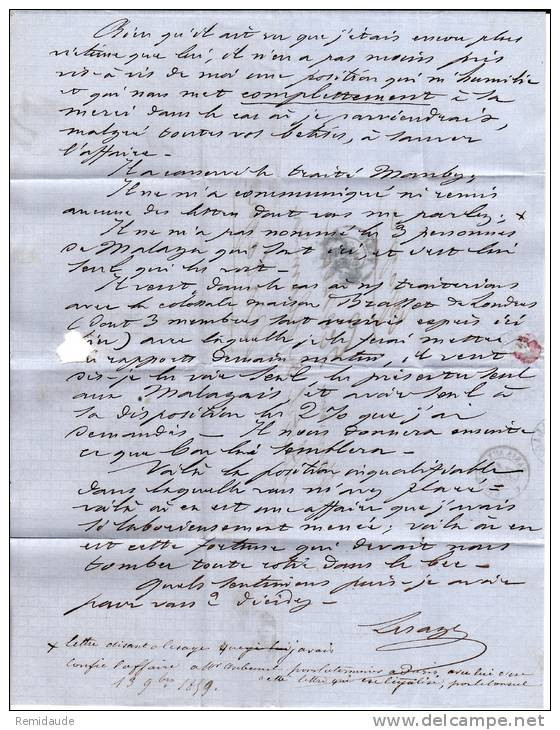 Bien qu'il ait vu que j'étais encore plus
victime que lui, il n'en a pas moins pris
vis à vis de moi une position qui m'humilie
et qui nous met complettement à la
merci dans le cas où je parviendrais,
malgré toutes vos bétises, à sauver
l'affaire -
Il a conservé le traité Manby;
Il ne m'a communiqué ni remis
aucune des lettres dont vous me parlez; x
Il ne m'a pas nommé les 3 personnes
de Malaga qui sont ici, et c'est lui
seul qui les voit -
Il veut, dans le cas où ns traiterions
avec la colossale maison Brasset de Londres
(dont 3 membres sont arrivés exprès ici
hier) avec laquelle je le ferai mettre
en rapport demain matin, il veut
dis-je la voir seul, la présenter seul
aux Malagais, et avoir seul à
sa disposition les 2 % que j'ai
demandés - Il nous donnera ensuite
ce que bon lui semblera -
Voilà la position inqualifiable
dans laquelle vous m'avez placé, -
voilà où en est une affaire que j'avais
si laborieusement menée; voilà où en
est cette fortune qui devait nous
tomber toute rotie dans le bec -
Quels sentimens puis-je avoir
pour vous? Décidez -
Lesage
x lettre disant à Lesage que j'avais
confié l'affaire à Mr
cette lettre qui en légalise, par le Consul
13 9bre 1859.
Remidaude
www.delcampe.net